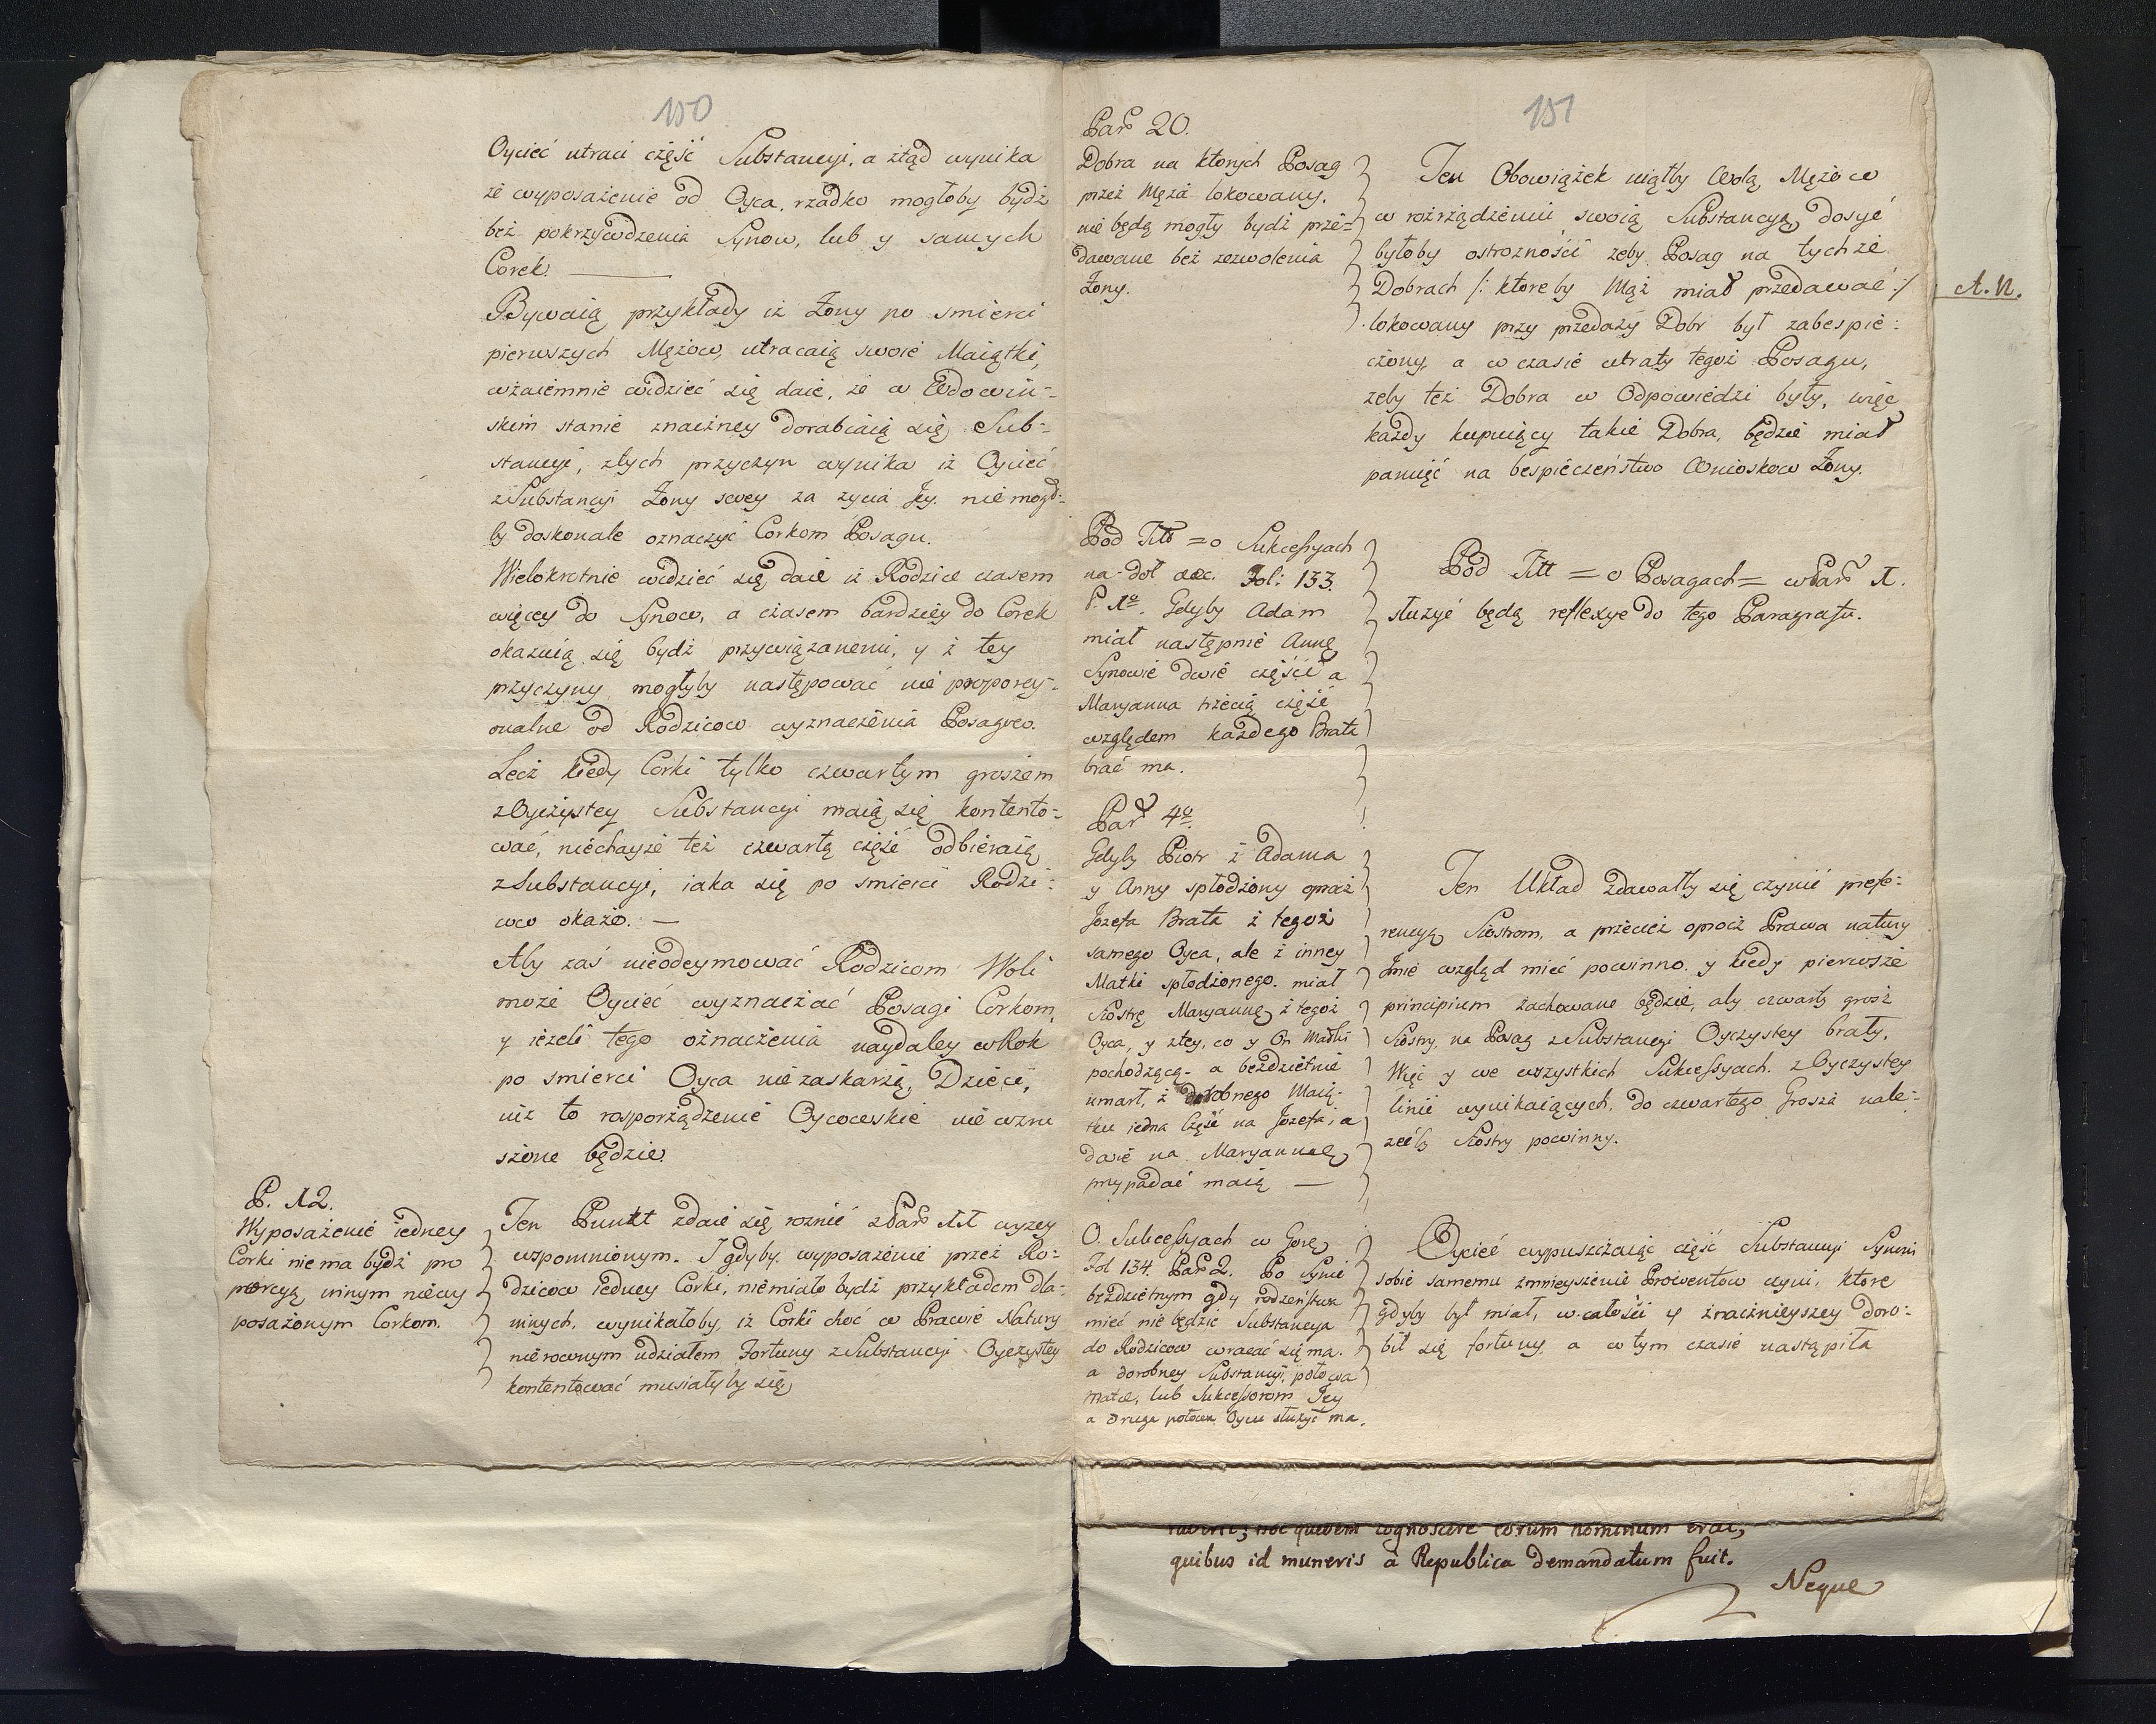 150
Oycieć utraci część Substancyi, a ztąd wynika
że wyposażenie od Oyca, rzadko mogłoby bydź
bez pokrzywdzenia Synow, lub y samych
Corek.
Bywaią przykłady iż Żony po smierci
pierwszych Mężow, utracaią swoie Maiątki,
wzaiemnie widzieć się daie, że w Wdowiń-
skim stanie znaczney dorabiaią się Sub-
stancyi, z tych przyczyn wynika iż Oycieć
z Substancyi Żony swey za życia Jey. nie mogł-
by doskonale oznaczyć Corkom Posagu.
Wielokrotnie widzieć się daie iż Rodzice czasem
więcey do Synow, a czasem bardziey do Corek
okazuią się bydź przywiązanemi, y z tey
przyczyny mogłyby następować nie proporcy-
onalne od Rodzicow wyznaczenia Posagow.
Lecz kiedy Corki tylko czwartym groszem
z Oyczystey Substancyi maią się kontento-
wać, niechayże też czwartą część odbieraią
z Substancyi, iaka się po smierci Rodzi-
cow okaże. —
Aby zaś nieodeymować Rodzicom Woli
może Oycieć wyznaczać Posagi Corkom,
y ieżeli tego oznaczenia naydaley w Rok
po smierci Oyca nie zaskarżą, Dzieci,
iuż to rosporządzenie Oycowskie nie wzru
szone będzie.
P. 12.
Wyposażenie iedney
Corki nie ma bydź pro
porcyą innym niewy
posażonym Corkom.
Ten Punkt zdaie się roznić z Par 11 wyzey
wspomnionym. I gdyby wyposażenie przez Ro-
dzicow iedney Corki, niemiało bydź przykładem dla-
innych, wynikałoby, iż Corki choć w Prawie Natury
nierownym udziałem Fortuny z Substancyi Oyczystey
kontentować musiałyby się
151
Par 20.
Dobra na ktorych Posag
przez Męża lokowany,
nie będą mogły bydź prze-
dawane bez zezwolenia
Żony.
Ten Obowiązek wiątłby Wolą Mężow
w rozrządzeniu swoią Substancyą, dosyć
byłoby ostrożności żeby Posag na tychże
Dobrach /: ktoreby Mąż miał przedawać :/
lokowany przy przedaży Dobr był zabespie-
czony, a w czasie utraty tegoż Posagu,
żeby też Dobra w Odpowiedzi były, więc
każdy kupuiący takie Dobra, będzie miał
pamięć na bespieczeństwo Wnioskow Żony.
A. N.
Pod Titt = o Sukcessyach
na doł Fol: 133.
P. 1o. Gdyby Adam
miał następnie Annę
Synowie dwie części a
Maryanna trzecią część
względem każdego Brata
brać ma.
Pod Titt = o Posagach = w Par 1.
służyć będą reflexye do tego Paragrafu.
Par 4o.
Gdyby Piotr z Adama
y Anny spłodzony oproż
Jozefa Brata z tegoż
samego Oyca, ale z inney
Matki spłodzonego. miał
Siostrę Maryannę z tegoż
Oyca, y z tey, co y On Matki
pochodzącą - a bezdzietnie
umarł, z dorobnego Maią-
tku iedna Część na Jozefa, a
dwie na Maryannę
przypadać maią —
Ten Układ zdawałby się czynić prefe-
rencyą Siostrom, a przecież oprocz Prawa natury
Jmie wzgląd mieć powinno. y kiedy pierwsze
principium zachowane będzie, aby czwarty grosz
Siostry, na Posag z Substancyi Oyczystey brały,
Więc y we wszystkich Sukcessyach. z Oyczystey
linii wynikaiących, do czwartego Grosza nale-
żećby Siostry powinny.
O Sukcessyach w Gorę
Fol 134. Par 2. Po Synie
bezdzietnym gdy rodzeństwa
mieć nie będzie Substancya
do Rodzicow wracać się ma.
a dorobney Substancyi, połowa
matce, lub Sukcessorom Jey
a druga połowa Oycu służyć ma.
Oycieć wypuszczaiąc część Substancyi Synowi
sobie samemu zmnieyszenie Prowentow czyni, ktore
gdyby był miał, w całości y znacznieyszey doro-
bił się fortuny a w tym czasie nastąpiła
cognoscere eorum hominum erat,
quibus id muneris à Republica demandatum fuit.
Neque